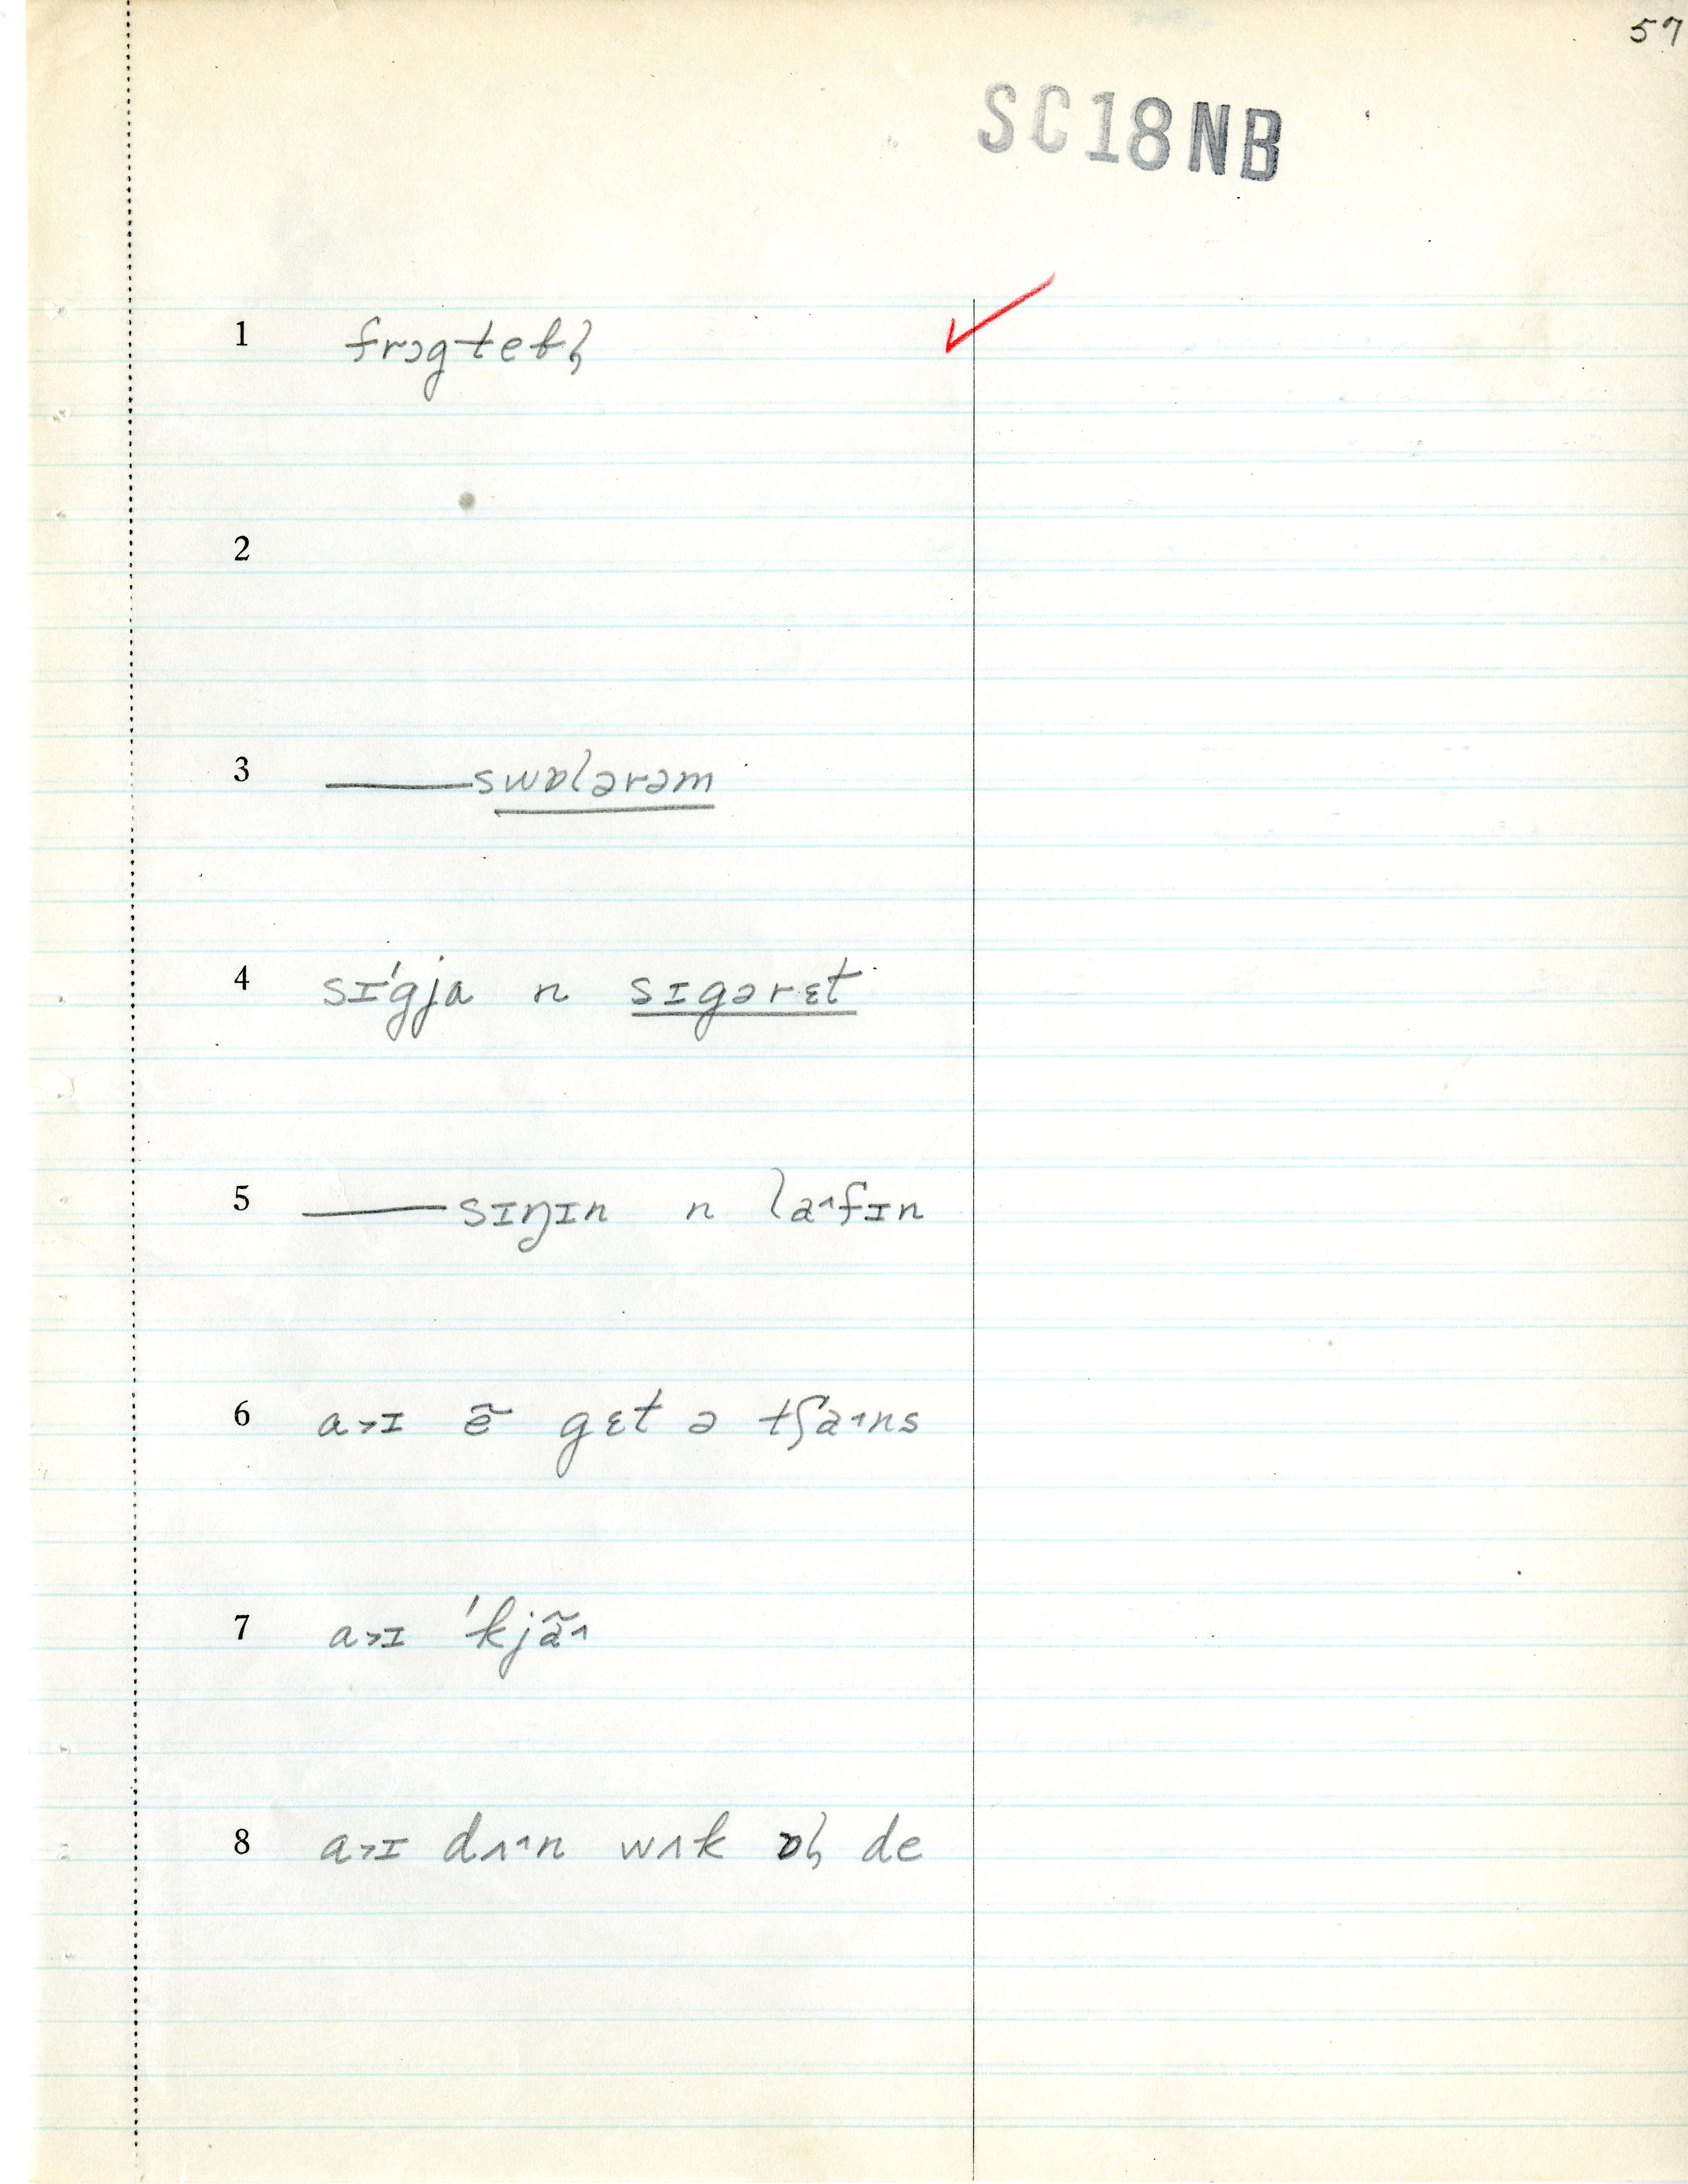 57
SC18NB
1 frɔgtebḷ
2
3 ——swɒlərəm
4 sɪ́gja n sɪgərɛt
5 ——sɪŋɪn n la˄fɪn
6 a˃ɪ ẽ gɛt ə tʃa˄ns
7 a˃ɪ ˈkjã˄
8 a˃ɪ dʌ˄n wʌk ɒḷ de